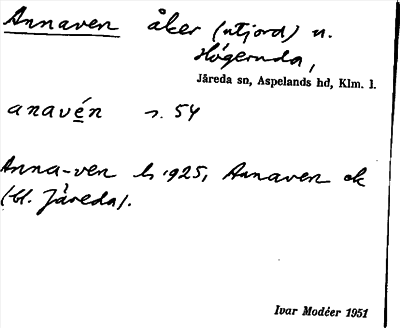 Annaven åker (utjord) u.
Högeruda,
Jåreda sn, Aspelands hd, Klm. l.
anavén s. 54
Anna-ven h 1925, Annaven ek
(bl. Jåreda).
Ivar Modéer 1951